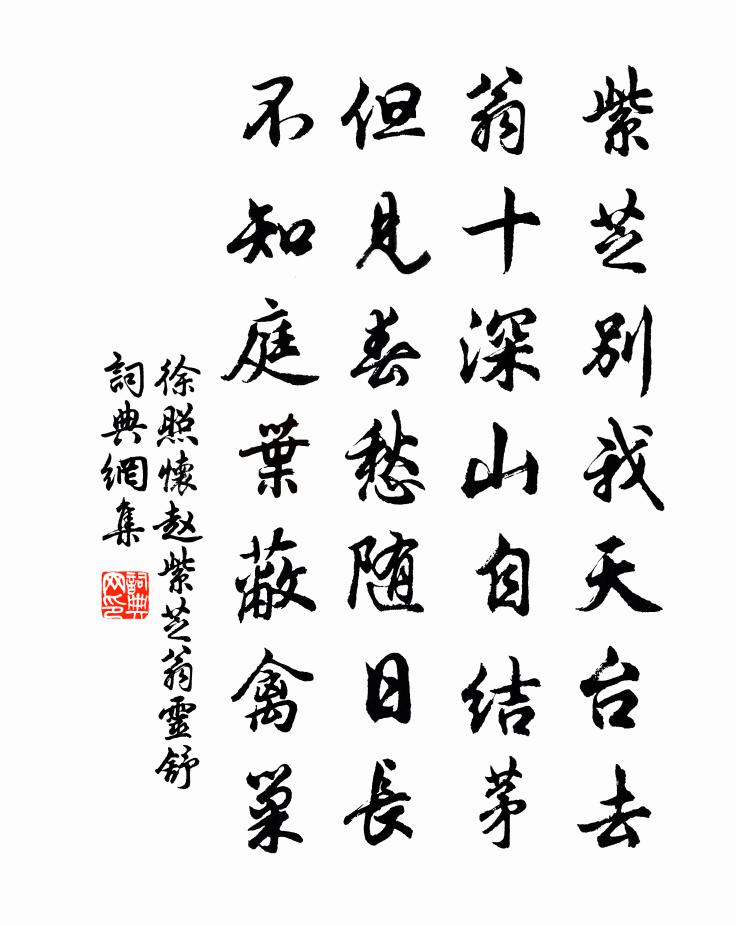 紫芝別我天台去
翁十深山自结茅
但見春愁随日長
不知庭葉蔽禽巢
徐照懷赵紫芝翁靈舒
詞典網集
詞典网印